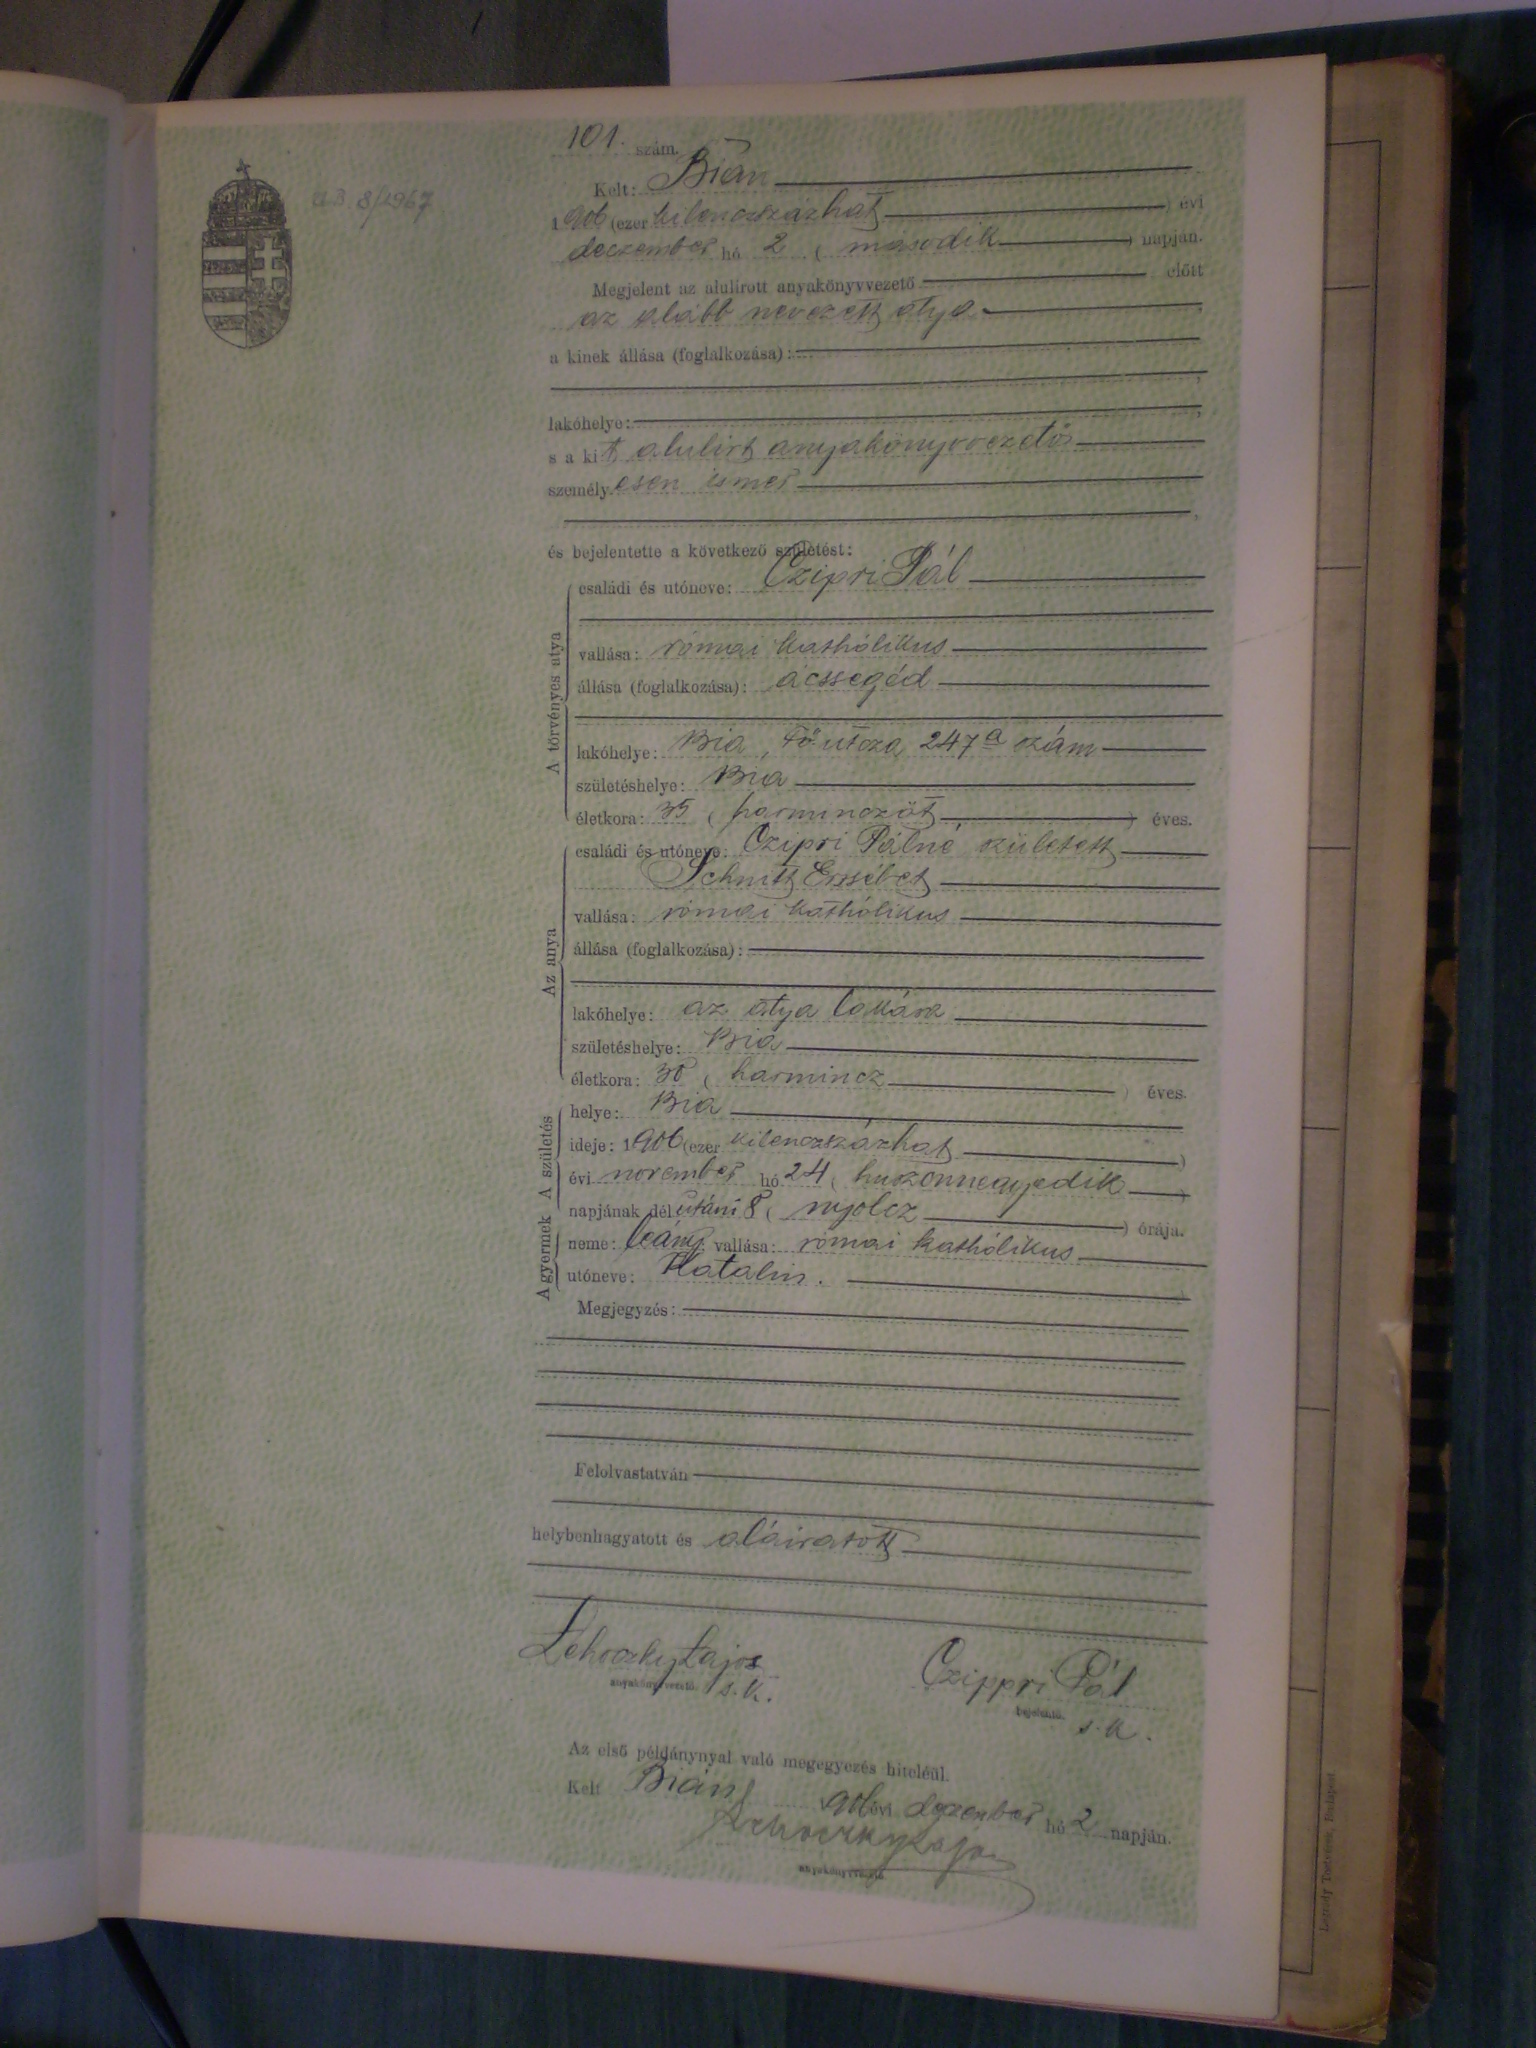 101. szám.
8/1967
Kelt: Bián
1906 (ezer kilenczszázhat) évi
deczember hó 2 (második) napján.
Megjelent az alulírott anyakönyvvezető előtt
az alább nevezett atya
a kinek állása (foglalkozása):
lakóhelye:
s a kit alulirt anyakönyvvezető
személyesen ismer
és bejelentette a következő születést:
A törvényes atya
családi és utóneve: Czipri Pál
vallása: római kathólikus
állása (foglalkozása): ácssegéd
lakóhelye: Bia, Fő utcza 247a szám
születéshelye: Bia
életkora: 35 (harminczöt) éves.
Az anya
családi és utóneve: Czipri Pálné született
Schmitt Erzsébet
vallása: római kathólikus
állása (foglalkozása):
lakóhelye: az atya lakása
születéshelye: Bia
életkora: 30 (harmincz) éves.
A születés
helye: Bia
ideje: 1906 (ezer kilenczszázhat)
évi november hó 24 (huszonnegyedik)
napjának délutáni 8 (nyolcz) órája.
A gyermek
neme: leány vallása: római kathólikus
utóneve: Katalin.
Megjegyzés:
Felolvastatván
helybenhagyatott és aláiratott
Lehoczky Lajos Czippri Pál
anyakönyvvezető. s.k. bejelentő. s.k.
Az első példánynyal való megegyezés hiteléül.
Kelt Bián 1906 évi deczember hó 2 napján.
Lehoczky Lajos
anyakönyvvezető
Légrády Testvérek, Budapest